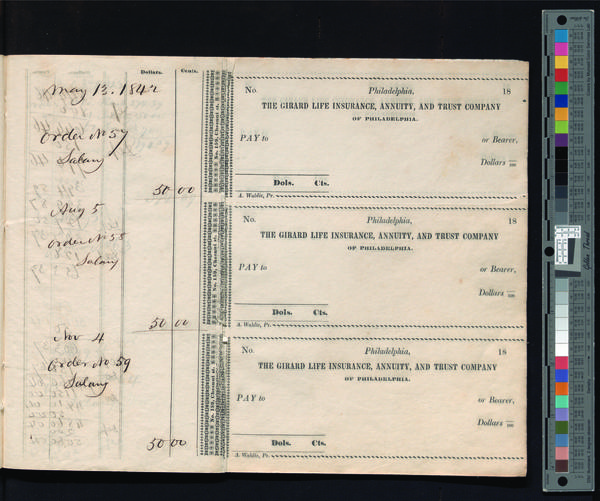 Dollars. Cents.
May 13. 1842
Order No 57
Salary
50 00
Aug 5
Order No 58
Salary
50 00
Nov 4
Order No 59
Salary
50 00
No. 159, Chesnut st.
No. Philadelphia, 18
THE GIRARD LIFE INSURANCE, ANNUITY, AND TRUST COMPANY
OF PHILADELPHIA.
PAY to or Bearer,
Dollars /100
Dols. Cts.
A. Waldie, Pr.
No. 159, Chesnut st.
No. Philadelphia, 18
THE GIRARD LIFE INSURANCE, ANNUITY, AND TRUST COMPANY
OF PHILADELPHIA.
PAY to or Bearer,
Dollars /100
Dols. Cts.
A. Waldie, Pr.
No. 159, Chesnut st.
No. Philadelphia, 18
THE GIRARD LIFE INSURANCE, ANNUITY, AND TRUST COMPANY
OF PHILADELPHIA.
PAY to or Bearer,
Dollars /100
Dols. Cts.
A. Waldie, Pr.